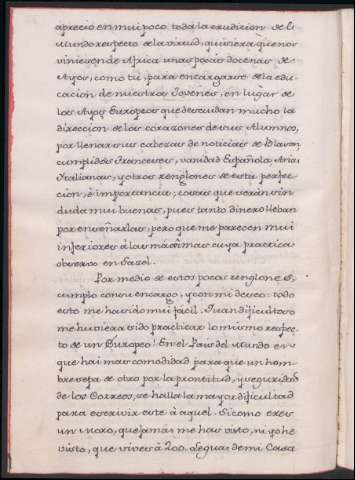 aprecio en mui poco toda la erudicion del
Mundo respecto de la virtud, quisiera que nos
viniesen de Africa unas pocas docenas de
Ayos, como tú, para encargarse de la edu-
cacion de nuestros Jovenes, en lugar de
los Ayos Europeos que descuidan mucho la
direccion de los corazones de sus Alumnos,
por llenar sus cabezas de noticias de Blason
cumplidos Franceses, vanidad Española, Arias
Italianas, y otros renglones de esta perfec-
cion, è importancia; cosas que seràn sin
duda mui buenas, pues tanto dinero lleban
por enseñarlas; pero que me parecen mui
inferiores à las màximas cuya practica
observo en Gazel.
Por medio de estos pocos renglones,
cumplo con su encargo, y con mi deseo: todo
esto me ha sido mui facil. Quan dificultoso
me huviera sido practicar lo mismo respec-
to de un Europeo! En el Pais del Mundo en
que hai mas comodidad para que un hom-
bre sepa de otro por la prontitud, y seguridad
de los Correos, se halla la mayor dificultad
para escrivir este à aquel. Si como eres
un Moro, que jamàs me has visto, ni yo he
visto, que vives à 200. leguas de mi Casa